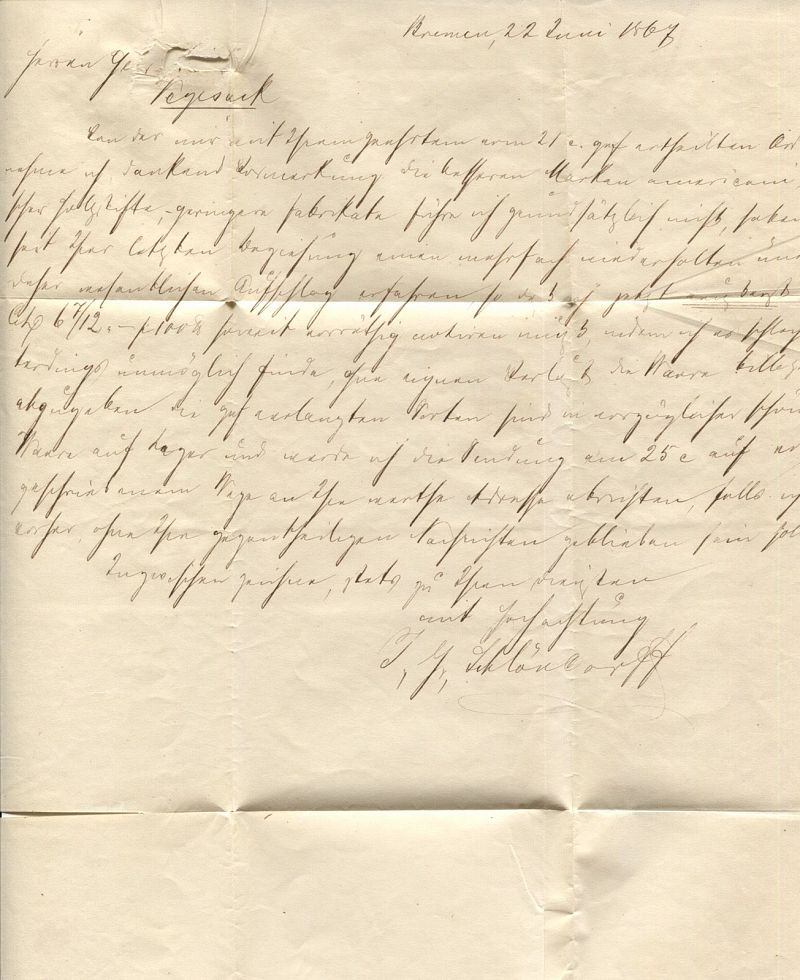 Bremen, 22 Juni 1867
Herren Ge
Vegesack
Von der mir mit Ihrem geehrten vom 21 c. gef ertheilten Ord
nehme ich dankend Vormerkung die besseren Marken americani
scher Holzstifte, geringere Fabrikate führe ich grundsätzlich nicht, haben
seit Ihrer letzten Beziehung einen mehrfach wiederholten und
daher wesentlichen Aufschlag erfahren so daß ich jetzt
6 7/12 - p 100 ℔ soweit vorräthig notiren muß, indem ich es schlech
terdings unmöglich finde, ohne eignen Verlust die Waare billiger
abzugeben die gef verlangten Sorten sind in vorzüglicher schöner
Waare auf Lager und werde ich die Sendung am 25 c auf vor
geschriebenem Wege an Ihre werthe Adresse abrichten, falls ich
vorher, ohne Ihre gegentheiligen Nachrichten geblieben sein sol
Inzwischen zeichne, stets zu Ihren Diensten
mit Hochachtung
J. H. Schlöndorff